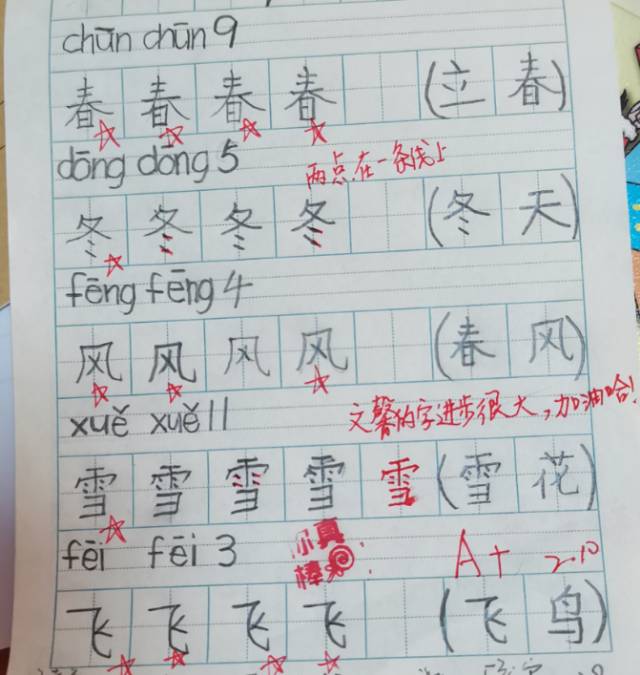 chūn chūn 9
春 春 春 春 (立 春)
dōng dōng 5
两点在一条线上
冬 冬 冬 冬 (冬 天)
fēng fēng 4
风 风 风 风 (春 风)
xuě xuě 11
文馨的字进步很大,加油哈!
雪 雪 雪 雪 雪 (雪 花)
fēi fēi 3
你真棒
A+ 2.10
飞 飞 飞 飞 (飞 鸟)